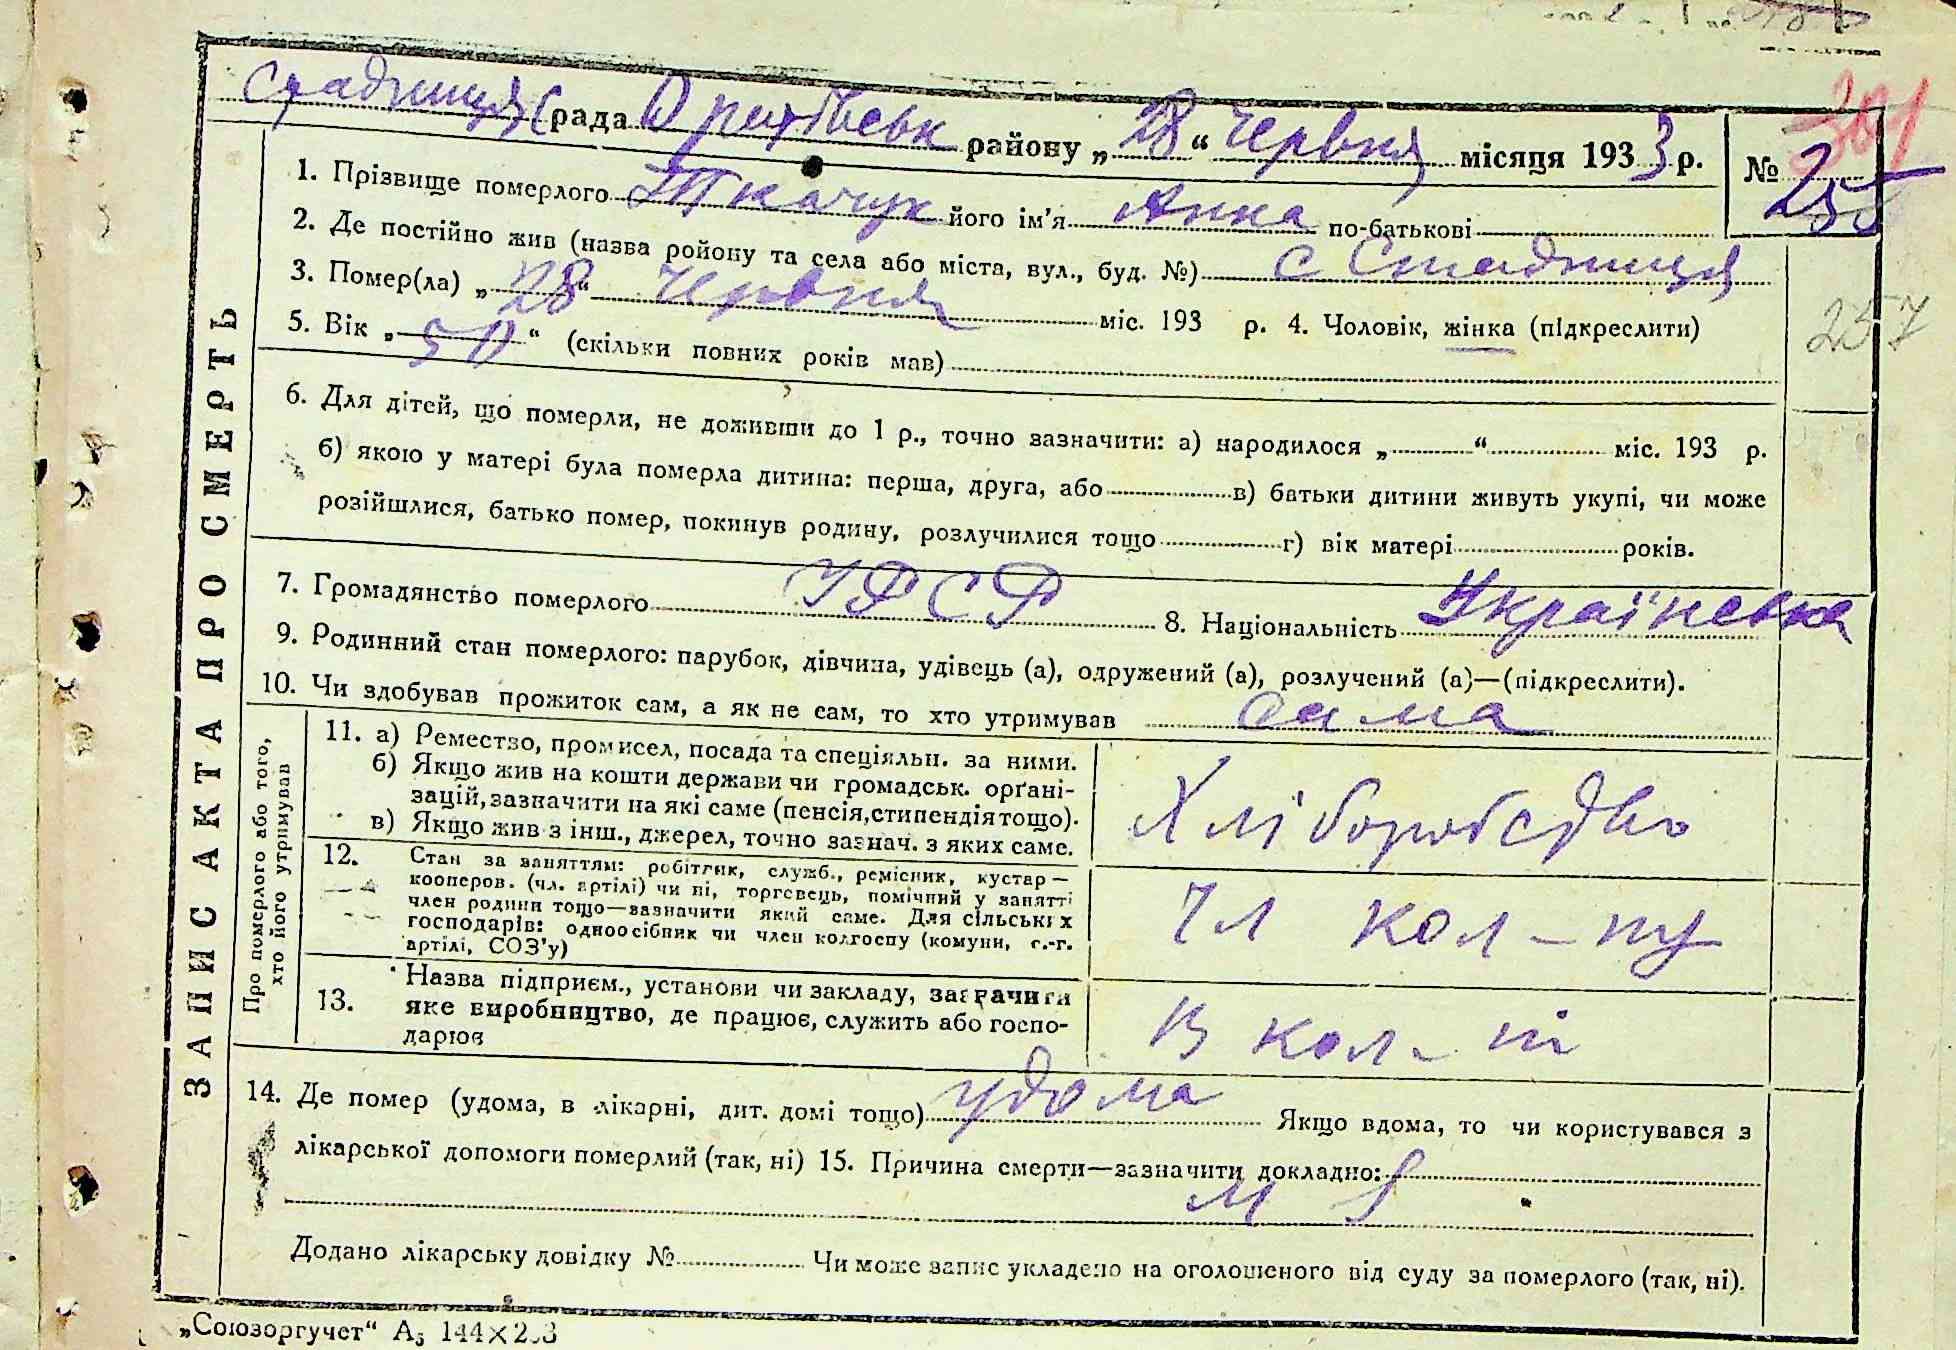 Стадниця рада Оратівськ району „28“ Червня місяця 1933 р. № 255
301
1. Прізвище померлого Ткачук його ім'я Анна по-батькові
2. Де постійно жив (назва ройону та села або міста, вул., буд. №) с Стадниця
3. Помер(ла) „28“ Червня міс. 193 р. 4. Чоловік, жінка (підкреслити)
257
5. Вік „50“ (скільки повних років мав)
6. Для дітей, що померли, не доживши до 1 р., точно зазначити: а) народилося „ “ міс. 193 р.
б) якою у матері була померла дитина: перша, друга, або в) батьки дитини живуть укупі, чи може
розійшлися, батько помер, покинув родину, розлучилися тощо г) вік матері років.
7. Громадянство померлого УРСР 8. Національність Українська
9. Родинний стан померлого: парубок, дівчина, удівець (а), одружений (а), розлучений (а)—(підкреслити).
10. Чи здобував прожиток сам, а як не сам, то хто утримував сама
ЗАПИС АКТА ПРО СМЕРТЬ
Про померлого або того,
хто його утримував
11. а) Ремество, промисел, посада та спеціяльн. за ними.
б) Якщо жив на кошти держави чи громадськ. орґані-
зацій, зазначити на які саме (пенсія, стипендія тощо).
в) Якщо жив з інш., джерел, точно зазнач. з яких саме.
Хліборобство
12. Стан за заняттям: робітник, служб., ремісник, кустар—
кооперов. (чл. артілі) чи ні, торговець, помічний у занятті
член родини тощо—зазначити який саме. Для сільських
господарів: одноосібник чи член колгоспу (комуни, с.-г.
артілі, СОЗ'у)
Чл кол-пу
13. Назва підприєм., установи чи закладу, зазначити
яке виробництво, де працює, служить або госпо-
дарює
В кол-пі
14. Де помер (удома, в лікарні, дит. домі тощо) удома Якщо вдома, то чи користувався з
лікарської допомоги померлий (так, ні) 15. Причина смерти—зазначити докладно:
Додано лікарську довідку № Чи може запис укладено на оголошеного від суду за померлого (так, ні).
„Союзоргучет“ А5 144×203